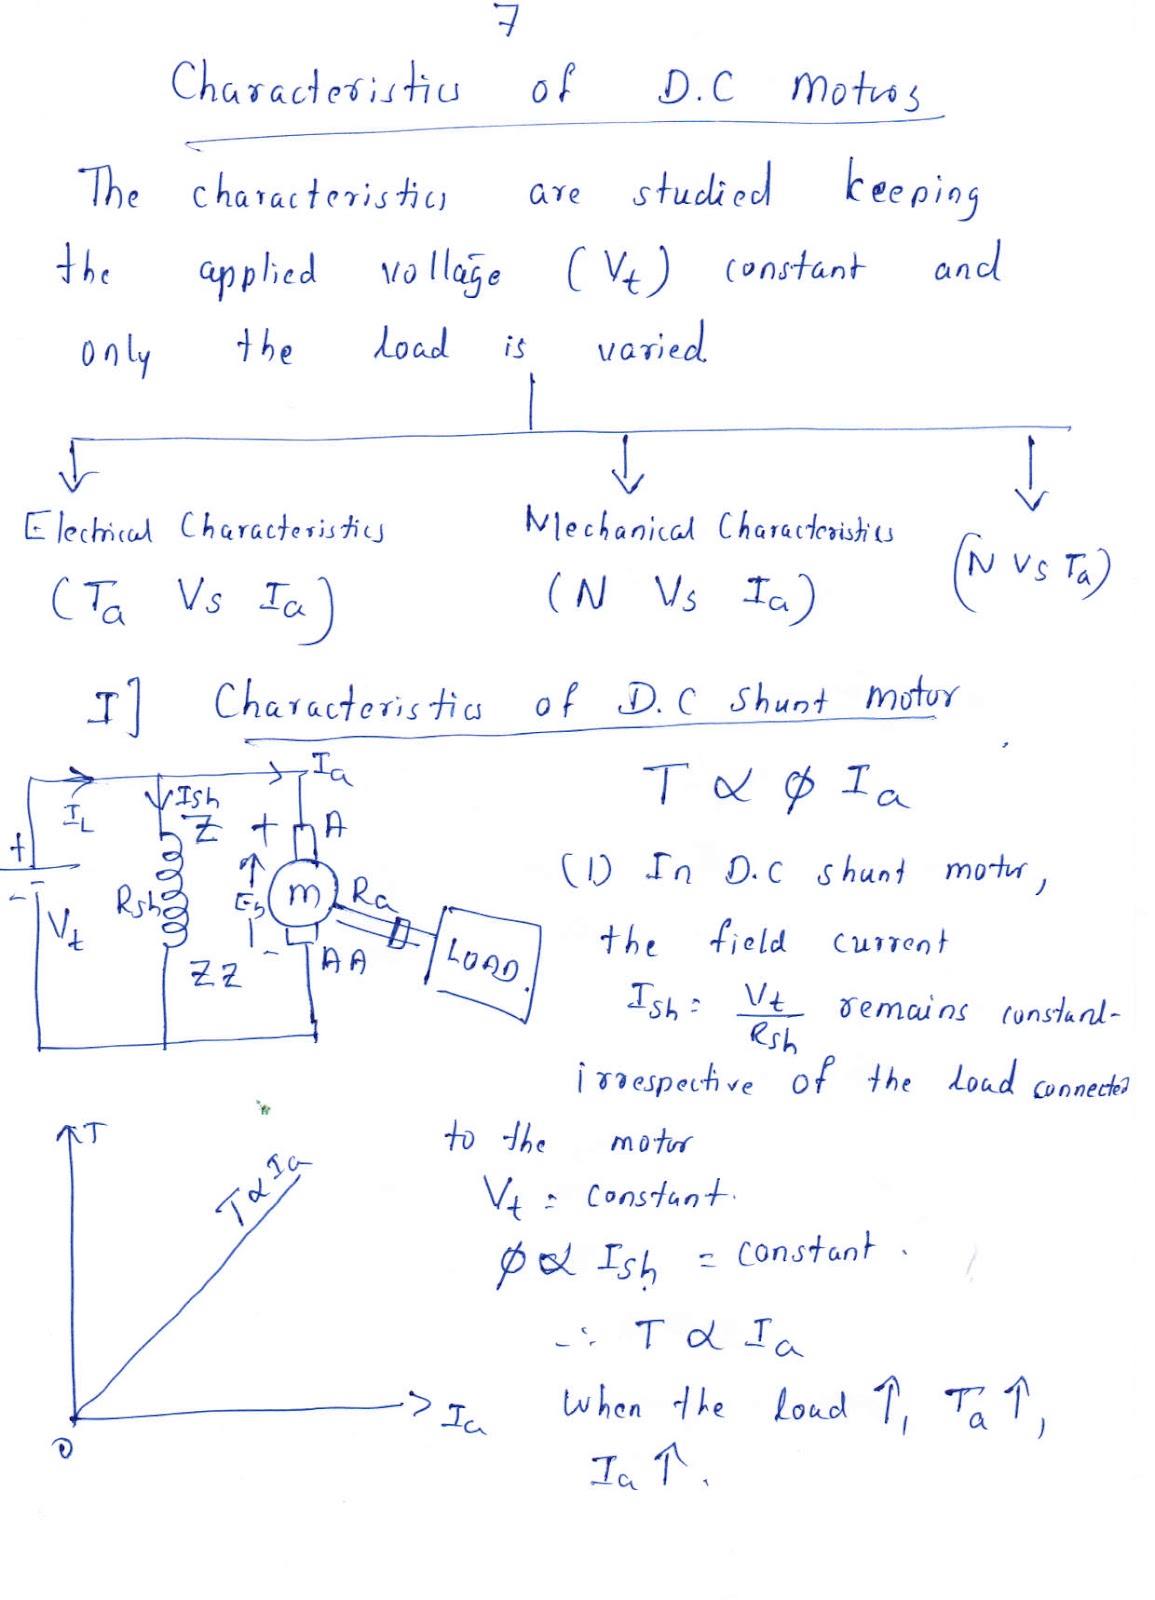 7
Characteristics of D.C Motors
The characteristics are studied keeping
the applied voltage (Vt) constant and
only the load is varied
Electrical Characteristics
(Ta Vs Ia)
Mechanical Characteristics
(N Vs Ia)
(N Vs Ta)
I] Characteristics of D.C Shunt Motor
IL
Ish
Ia
Z
+
A
+
-
Vt
Rsh
Eb
M
Ra
-
ZZ
AA
LOAD.
T ∝ ϕ Ia
(1) In D.C shunt motor,
the field current
Ish = Vt/Rsh remains constant
irrespective of the load connected
to the motor
Vt = constant.
ϕ ∝ Ish = constant.
∴ T ∝ Ia
When the load ↑, Ta ↑,
Ia ↑.
T
T ∝ Ia
Ia
0